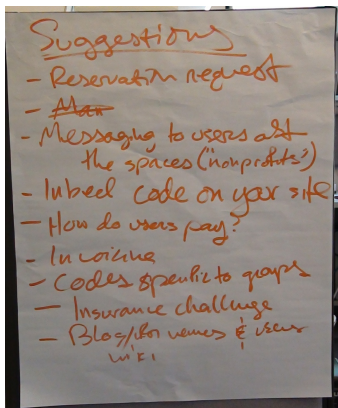 Suggestions
- Reservation request
- Man
- Messaging to users abt
the spaces ("nonprofits")
- Inbeed code on your site
- How do users pay?
- Invoicing
- Codes specific to groups
- Insurance challenge
- Blog/ for venues & users
wiki